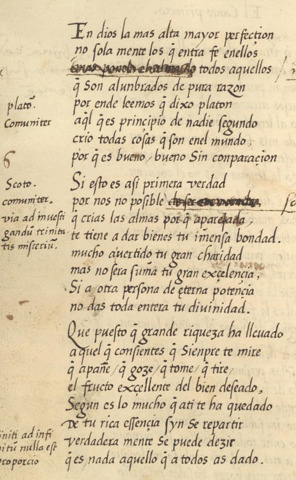 En dios la mas alta mayor perfection
no sola mente los q̃ entra fe enellos
todos aquellos
q̃ Son alunbrados de pura razon
por ende leemos q̃ dixo platon
aq̃l q̃ es principio de nadie segundo
crio todas cosas q̃ son enel mundo
por q̃ es bueno, bueno Sin conparacion
platõ.
Comuniter
6
Si esto es asi primera verdad
por nos no posible
q̃ crias las almas por q̃ aparejada
te tiene a dar bienes tu imẽnsa bondad.
mucho avertido tu gran charidad
mas no sera sumã tu gran excelencia.
Si a otra persona de eterna potençia
no das toda entera tu divinidad.
Scoto.
comuniter,
via ad investi
gandũ trinita
tis misteriũ.
Que puesto q̃ grande riqueza ha llevado
aquel q̃ consientes q̃ Sienpre te mire
q̃ apañe / q̃ goze / q̃ tome / q̃ tire /
el fructo excellente del bien deseado,
Segun es lo mucho q̃ ati te ha quedado
De tu rica essençia syn Se repartir
verdadera mente Se puede dezir
q̃ es nada aquello q̃ a todos as dado.
initi ad infi
nitũ nulla est
proporcio